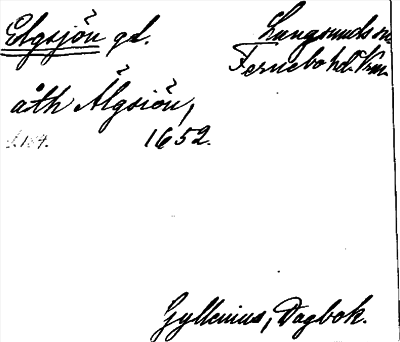 Elgsjön gd.
Långsunds sn
Fernebo hd. Vrm.
åth Älgsiön,
1652.
Gyllenius, Dagbok.